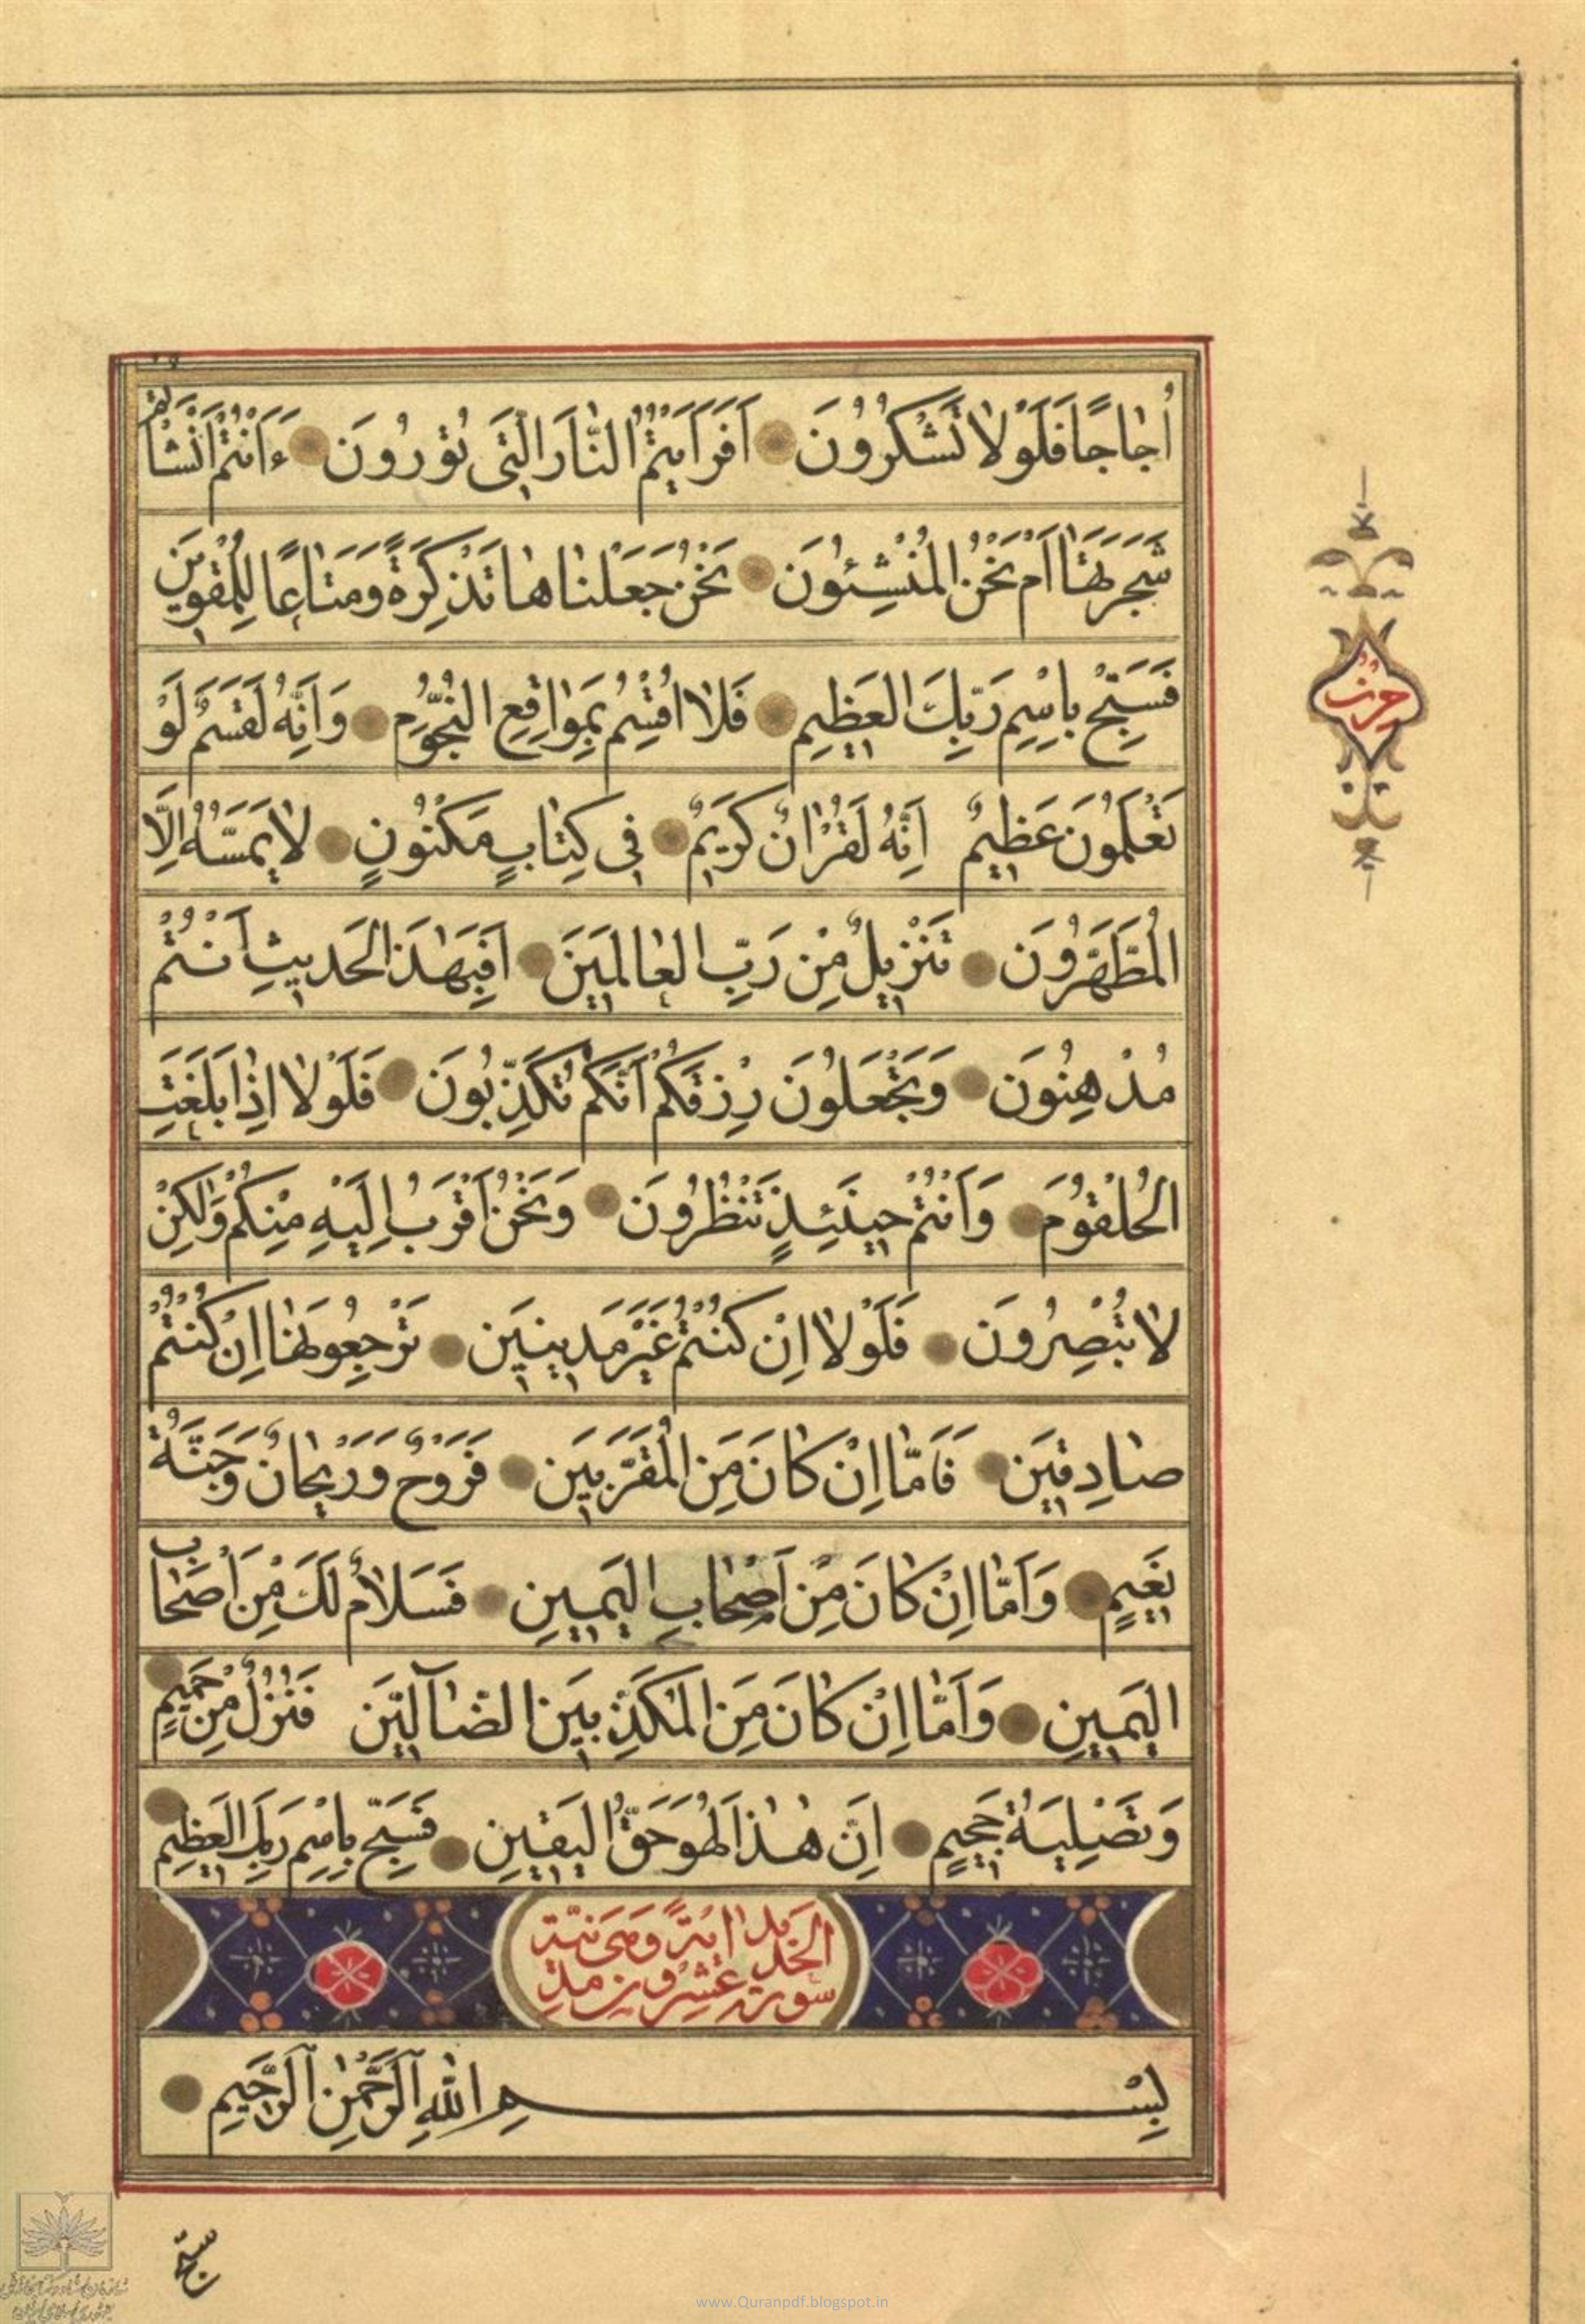 اُجٰاجًا فَلَوْلٰا تَشْكُرُونَ اَفَرَاَيْتُمُ النّٰارَ الَّتِى تُورُونَ ءَاَنْتُمْ اَنْشَاْتُمْ
شَجَرَتَهٰا اَمْ نَحْنُ الْمُنْشِئُونَ نَحْنُ جَعَلْنٰاهٰا تَذْكِرَةً وَمَتٰاعًا لِلْمُقْوِينَ
فَسَبِّحْ بِاسْمِ رَبِّكَ الْعَظِيمِ فَلٰا اُقْسِمُ بِمَوٰاقِعِ النُّجُومِ وَاَنَّهُ لَقَسَمٌ لَوْ
تَعْلَمُونَ عَظِيمٌ اِنَّهُ لَقُرْاٰنٌ كَرِيمٌ فِى كِتٰابٍ مَكْنُونٍ لٰا يَمَسُّهُ اِلَّا
الْمُطَهَّرُونَ تَنْزِيلٌ مِنْ رَبِّ الْعٰالَمِينَ اَفَبِهٰذَا الْحَدِيثِ اَنْتُمْ
مُدْهِنُونَ وَتَجْعَلُونَ رِزْقَكُمْ اَنَّكُمْ تُكَذِّبُونَ فَلَوْلٰا اِذٰا بَلَغَتِ
الْحُلْقُومَ وَاَنْتُمْ حِينَئِذٍ تَنْظُرُونَ وَنَحْنُ اَقْرَبُ اِلَيْهِ مِنْكُمْ وَلٰكِنْ
لٰا تُبْصِرُونَ فَلَوْلٰا اِنْ كُنْتُمْ غَيْرَ مَدِينِينَ تَرْجِعُونَهٰا اِنْ كُنْتُمْ
صٰادِقِينَ فَاَمّٰا اِنْ كٰانَ مِنَ الْمُقَرَّبِينَ فَرَوْحٌ وَرَيْحٰانٌ وَجَنَّةُ
نَعِيمٍ وَاَمّٰا اِنْ كٰانَ مِنْ اَصْحٰابِ الْيَمِينِ فَسَلٰامٌ لَكَ مِنْ اَصْحٰابِ
الْيَمِينِ وَاَمّٰا اِنْ كٰانَ مِنَ الْمُكَذِّبِينَ الضّٰآلِّينَ فَنُزُلٌ مِنْ حَمِيمٍ
وَتَصْلِيَةُ جَحِيمٍ اِنَّ هٰذٰا لَهُوَ حَقُّ الْيَقِينِ فَسَبِّحْ بِاسْمِ رَبِّكَ الْعَظِيمِ
سورة الحديد عشرون
بِسْمِ اللّٰهِ الرَّحْمٰنِ الرَّحِيمِ
حزب
سبّح
www.Quranpdf.blogspot.in